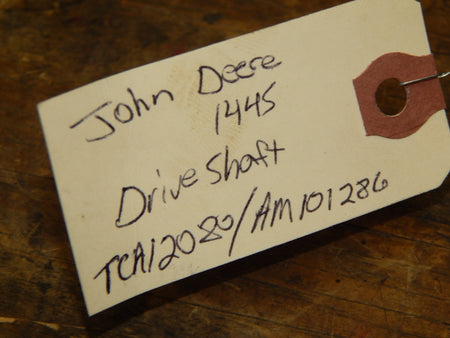 John Deere
1445
Drive Shaft
TCA12080/AM101286